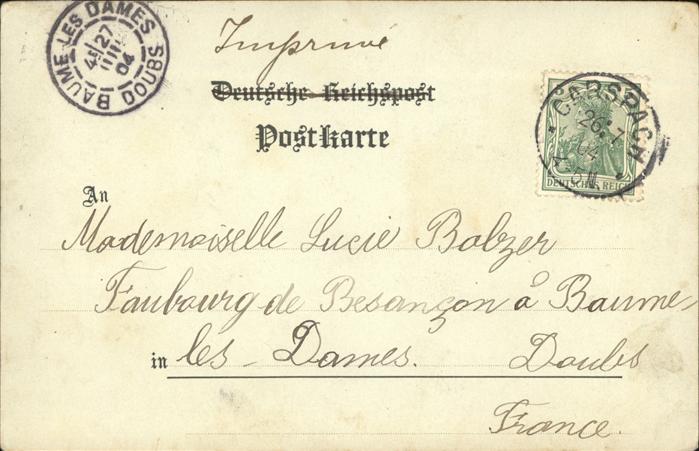 BAUME LES DAMES
4E/27
04
DOUBS
Imprimé
Deutsche Reichspost
Postkarte
CARSPACH
26.7
04
DEUTSCHES REICH
An
Mademoiselle Lucie Balzer
Faubourg de Besançon à Baume-
in les - Dames. Doubs
France.